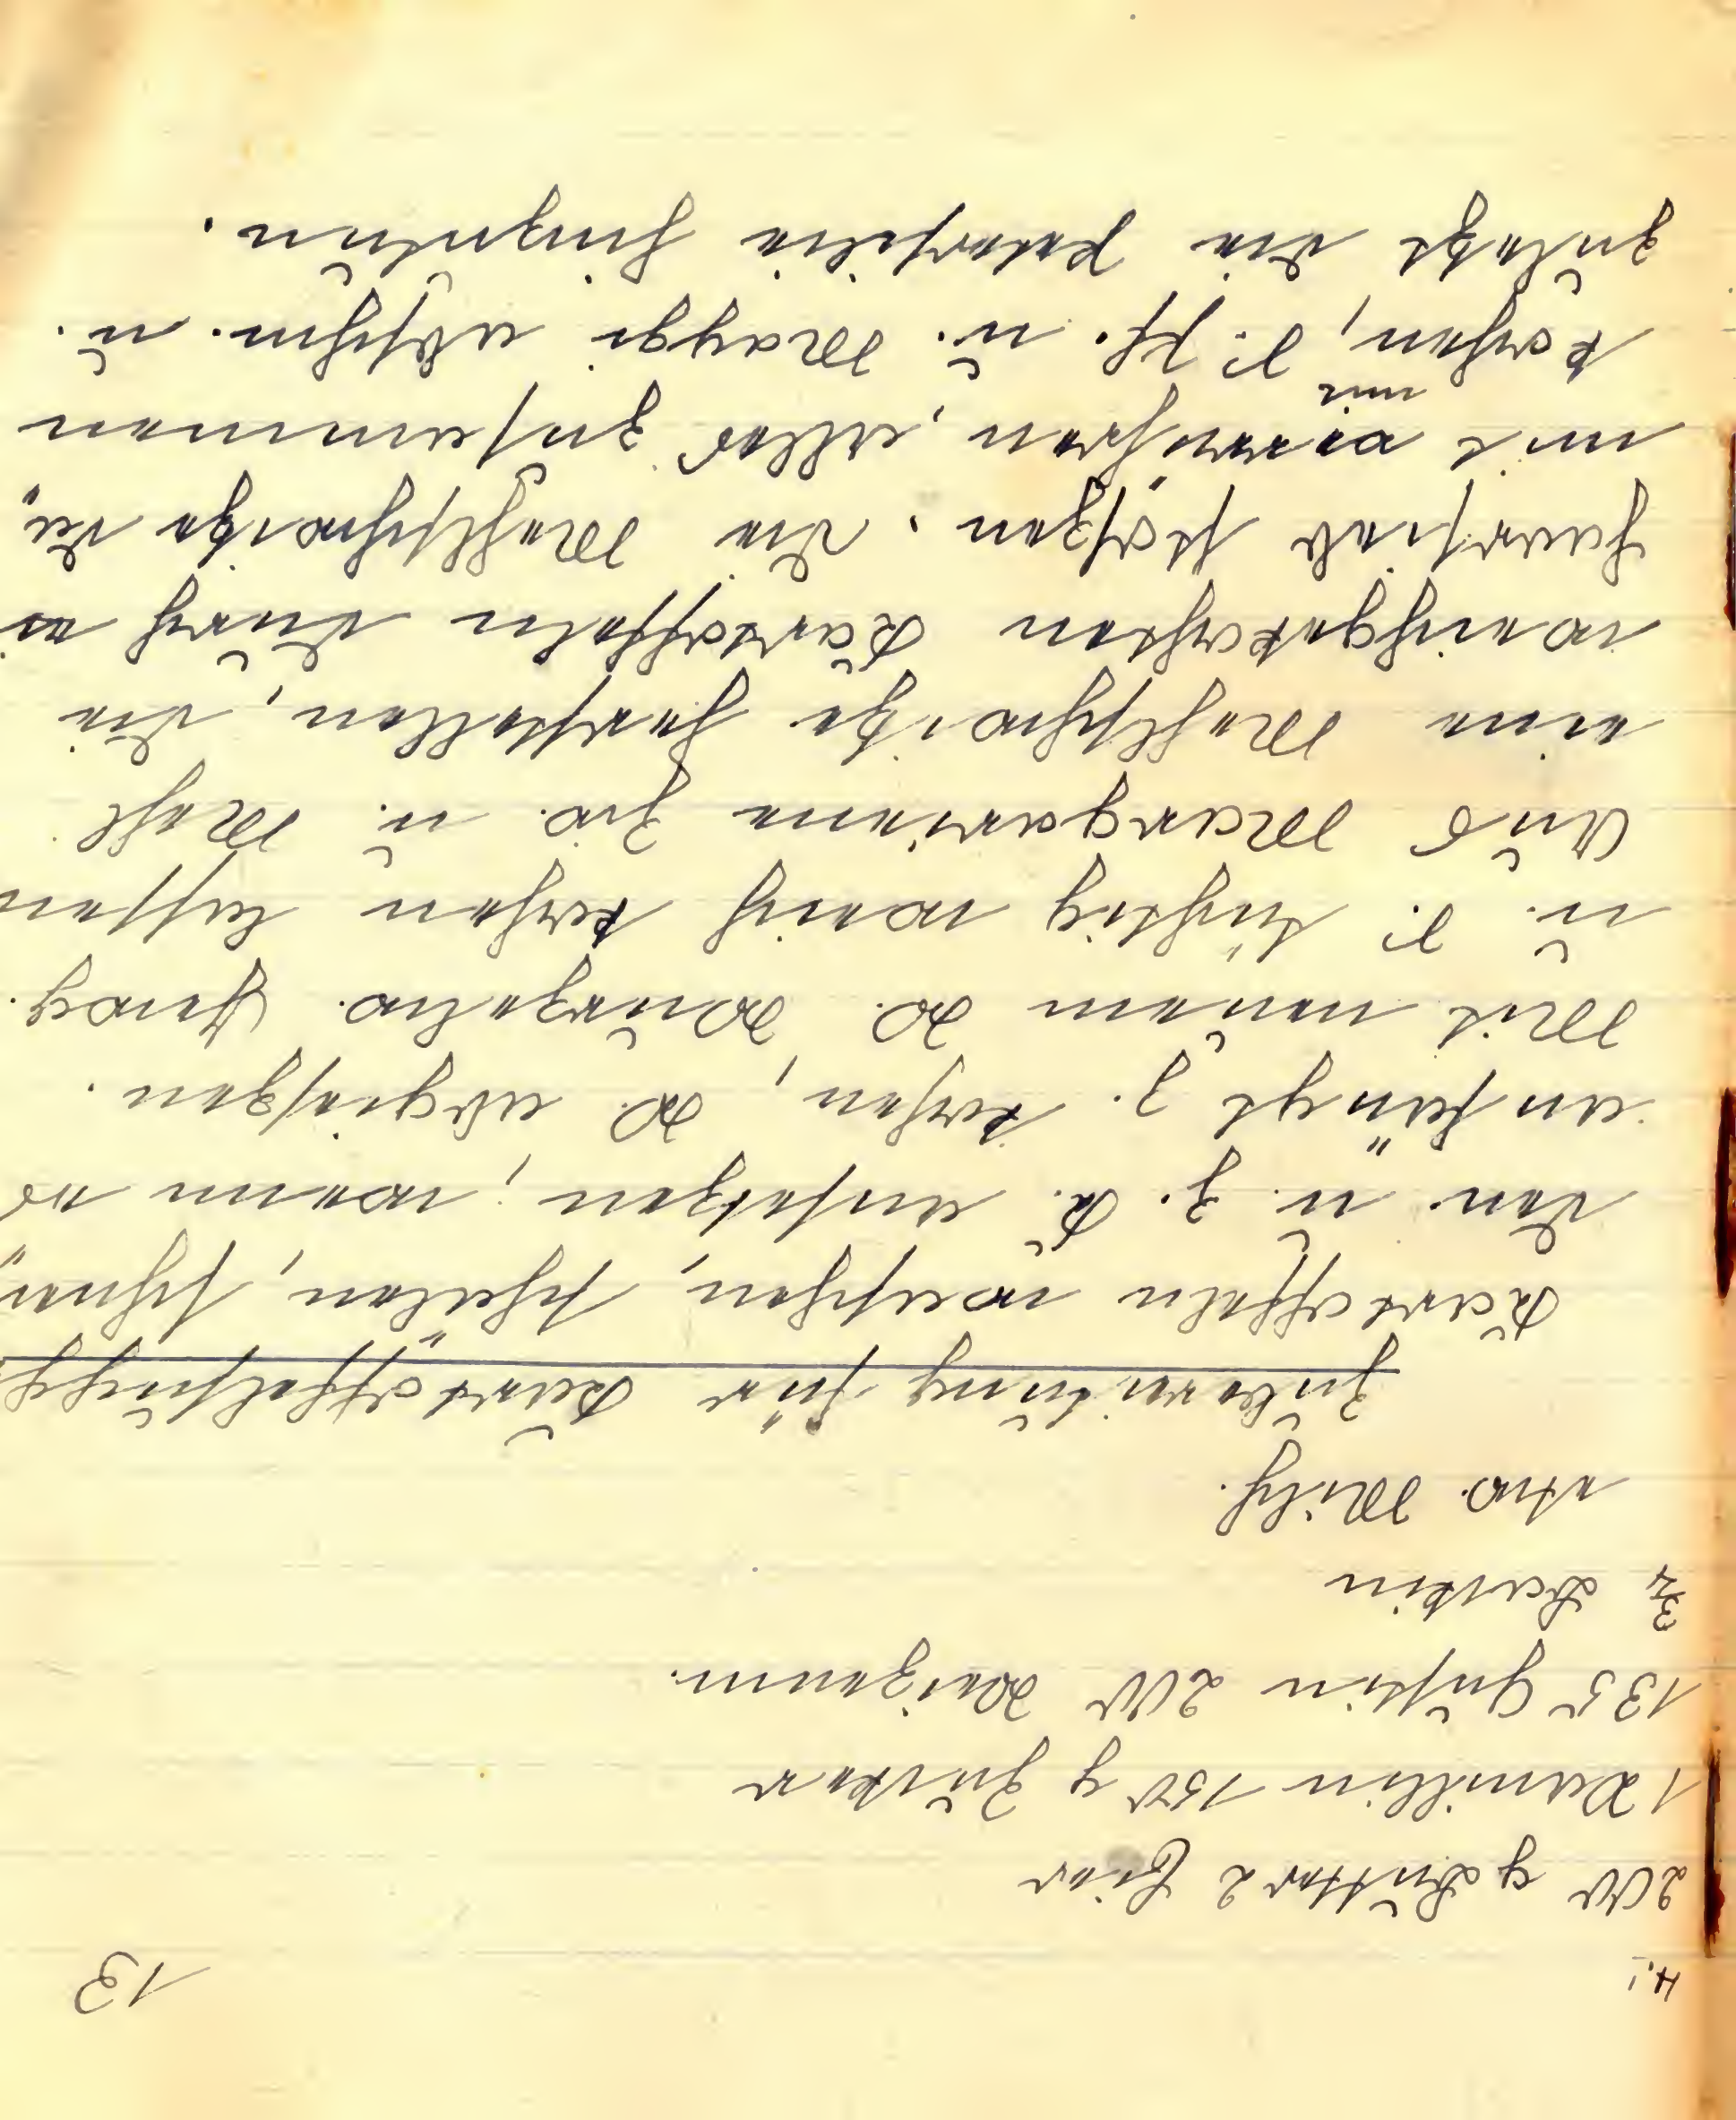 H.i 13
200 g Butter 2 Eier
1 Vanillin 150 g Zucker
135 Gustin 200 Weizenm.
3/4 Backin
etw. Milch.
Zubereitung für Kartoffelsupp
Kartoffeln waschen, schälen, schnei„
den u. z. K. ansetzen, wenn es
anfängt z. kochen, W. abgießen.
Mit neuem W. Wurzelw. Gewg.
u. S. tüchtig weich kochen lassen
Aus Margarine Zw. u. Mehl
eine Mehlschwitze herstellen, die
weichgekochten Kartoffeln durch e.
Haarsieb stoßen. die Mehlschwitze da„
mit verrühren, alles zusammen
kochen, S. Pf. u. Maggi abschm. u.
zuletzt die Petersilie hinzutun.